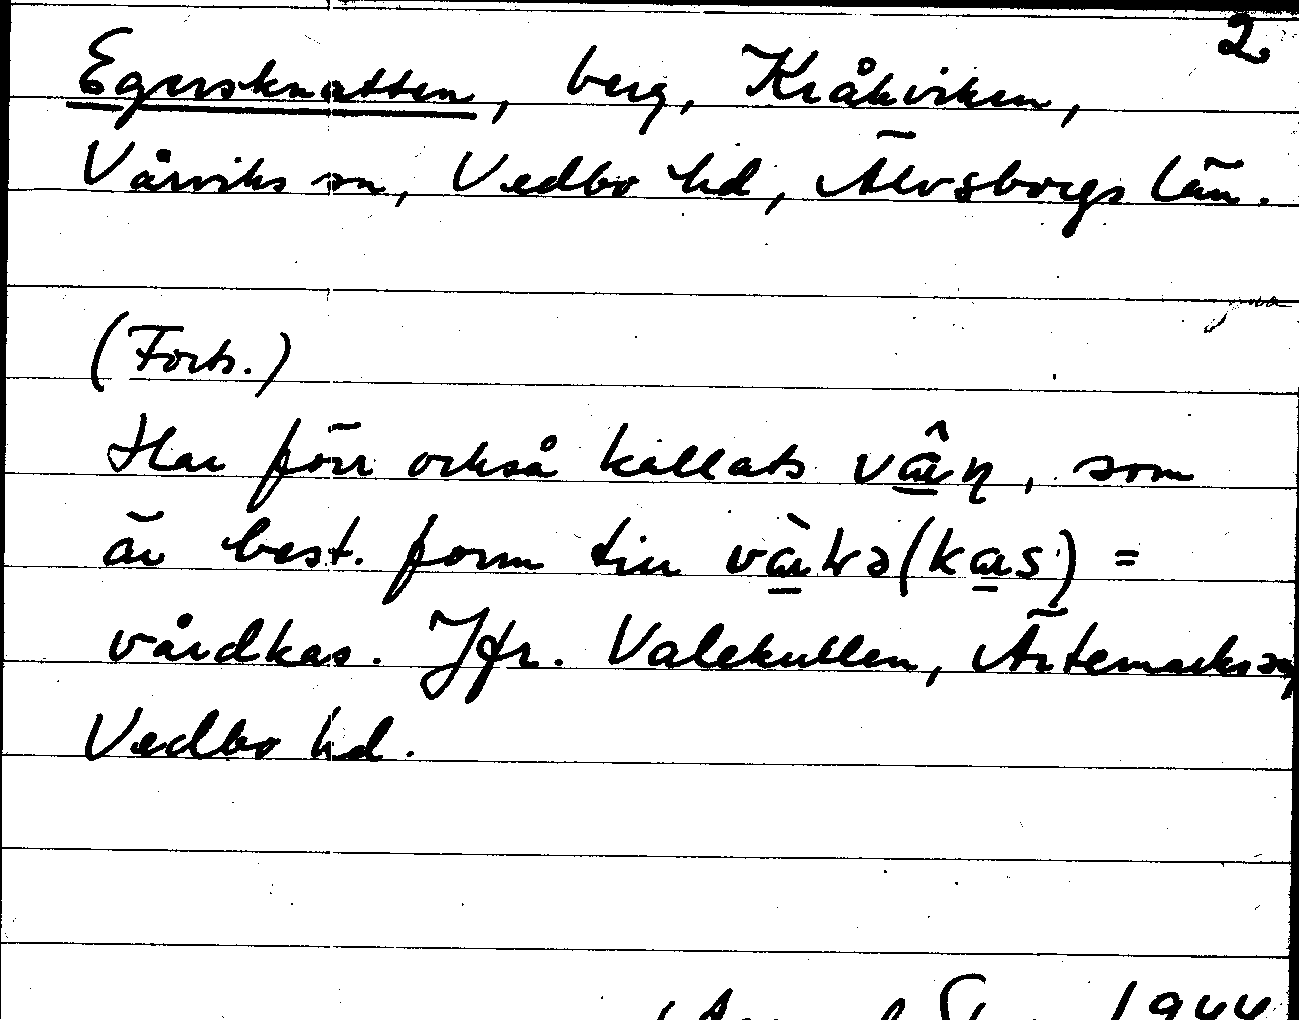 2
Egersknatten, berg, Kråkviken,
Vårviks sn, Vedbo hd, Älvsborgs län.
(Forts.)
Har förr också kallats vα̂η, som
är best. form till
vårdkas. Jfr. Valekullen, Ärtemarks sn,
Vedbo hd.
1944